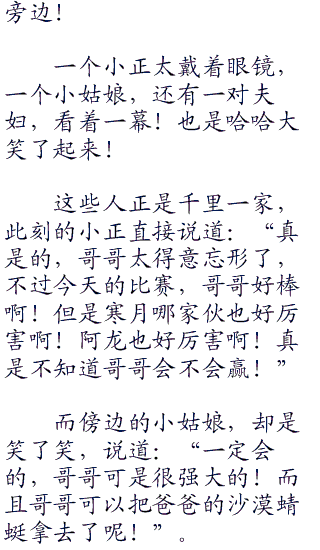 旁边！
一个小正太戴着眼镜，
一个小姑娘，还有一对夫
妇，看着一幕！也是哈哈大
笑了起来！
这些人正是千里一家，
此刻的小正直接说道：“真
是的，哥哥太得意忘形了，
不过今天的比赛，哥哥好棒
啊！但是寒月哪家伙也好厉
害啊！阿龙也好厉害啊！真
是不知道哥哥会不会赢！”
而傍边的小姑娘，却是
笑了笑，说道：“一定会
的，哥哥可是很强大的！而
且哥哥可以把爸爸的沙漠蜻
蜓拿去了呢！”。